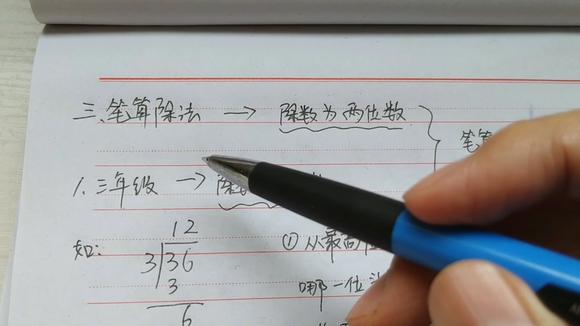 三、笔算除法 → 除数为两位数
笔算
1.三年级 → 除
如:
12
3/36
3
6
①从最高位
哪一位